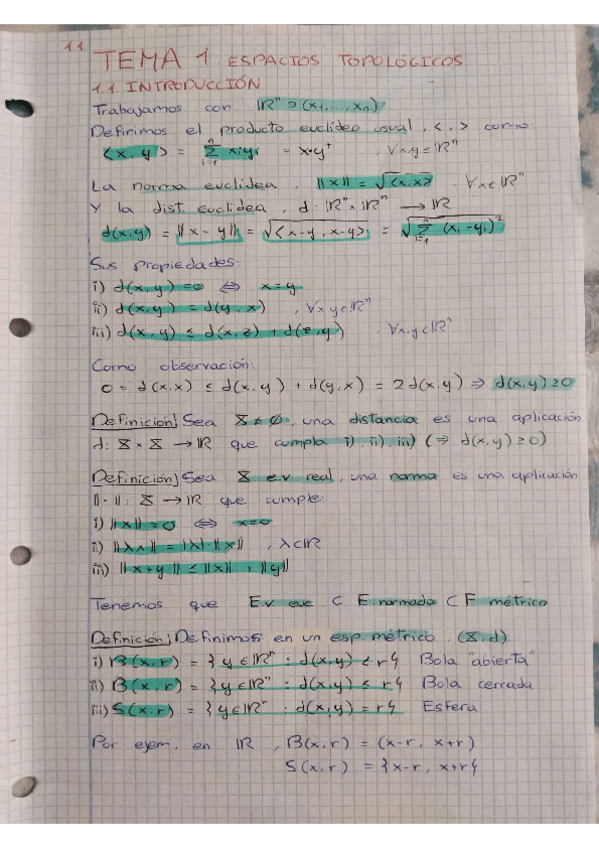 1.1
TEMA 1 ESPACIOS TOPOLÓGICOS
1.1 INTRODUCCIÓN
Trabajamos con ℝⁿ ∋ (x₁, ..., xₙ)
Definimos el producto euclídeo usual, <,> como:
<x, y> = Σᵢ₌₁ⁿ xᵢyᵢ = x·yᵗ ∀x,y ∈ ℝⁿ
La norma euclídea, ||x|| = √<x,x> ∀x∈ℝⁿ
Y la dist. euclídea, d: ℝⁿ×ℝⁿ → ℝ
d(x,y) = ||x-y|| = √<x-y, x-y> = √Σᵢ₌₁ⁿ (xᵢ-yᵢ)²
Sus propiedades:
i) d(x,y)=0 ⇔ x=y
ii) d(x,y) = d(y,x) , ∀x,y∈ℝⁿ
iii) d(x,y) ≤ d(x,z) + d(z,y) , ∀x,y∈ℝⁿ
Como observación:
0 = d(x,x) ≤ d(x,y) + d(y,x) = 2d(x,y) ⇒ d(x,y)≥0
Definición| Sea X≠∅, una distancia es una aplicación
d: X×X → ℝ que cumpla i), ii), iii) (⇒ d(x,y)≥0)
Definición| Sea X e.v real, una norma es una aplicación
||·||: X → ℝ que cumple:
i) ||x||=0 ⇔ x=0
ii) ||λx|| = |λ|·||x|| , λ∈ℝ
iii) ||x+y|| ≤ ||x|| + ||y||
Tenemos que E.v. eue ⊂ E normado ⊂ E métrico
Definición| Definimos en un esp métrico (X,d)
i) B(x,r) = {y∈ℝⁿ : d(x,y)<r} Bola "abierta"
ii) B(x,r) = {y∈ℝⁿ : d(x,y)≤r} Bola cerrada
iii) S(x,r) = {y∈ℝⁿ : d(x,y)=r} Esfera
Por ejem. en ℝ, B(x,r) = (x-r, x+r)
S(x,r) = {x-r, x+r}